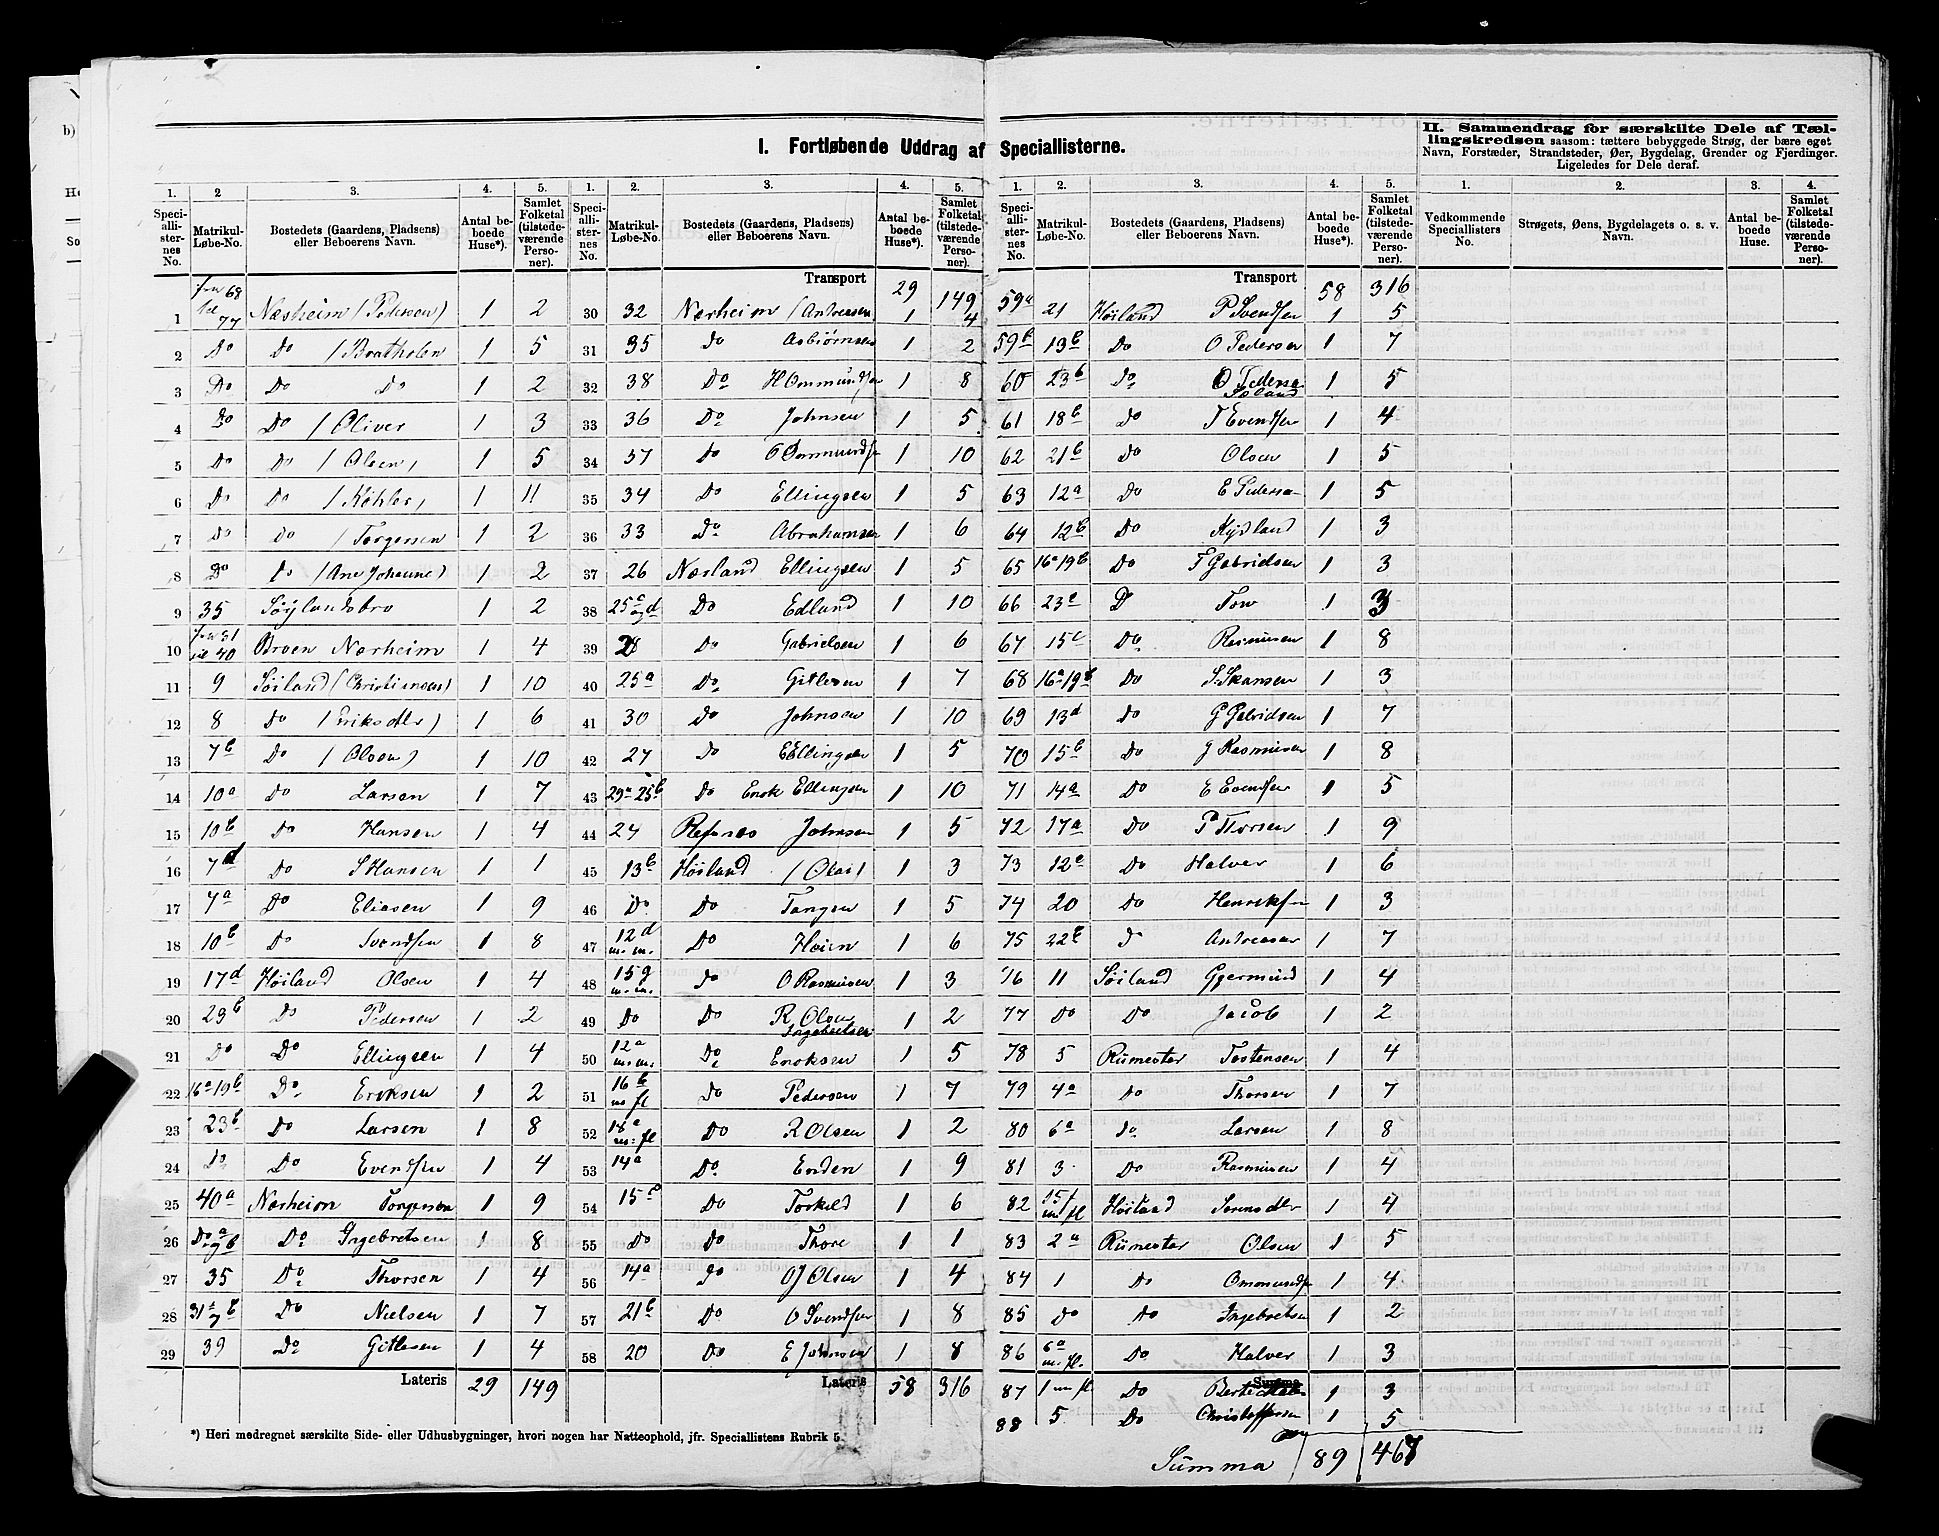 I. Fortløbende Uddrag af Speciallisterne.
II. Sammendrag for særskilte Dele af Tællingskredsen saasom: tættere bebyggede Strøg, der bære eget Navn, Forstæder, Strandsteder, Øer, Bygdelag, Grender og Fjerdinger. Ligeledes for Dele deraf.
1. 2 3. 4. 5. 1. 2. 3. 4. 5. 1. 2. 3. 4. 5. 1. 2. 3. 4.
Speciallisternes No. Matrikul-Løbe-No. Bostedets (Gaardens, Pladsens) eller Beboerens Navn. Antal beboede Huse*). Samlet Folketal (tilstedeværende Personer).
Speciallisternes No. Matrikul-Løbe-No. Bostedets (Gaardens, Pladsens) eller Beboerens Navn. Antal beboede Huse*). Samlet Folketal (tilstedeværende Personer).
Speciallisternes No. Matrikul-Løbe-No. Bostedets (Gaardens, Pladsens) eller Beboerens Navn. Antal beboede Huse*). Samlet Folketal (tilstedeværende Personer).
Vedkommende Speciallisters No. Strøgets, Øens, Bygdelagets o. s. v. Navn. Antal beboede Huse. Samlet Folketal (tilstedeværende Personer).
1 fra 68 til 77 Nærheim (Pedersen) 1 2
2 Do Do 1 5
3 Do Do Do 1 2
4 Do Do (Oliver 1 3
5 Do Do (Olsen) 1 5
6 Do Do (Køhler) 1 11
7 Do Do (Torgersen 1 2
8 Do Do (Ane Johanne) 1 2
9 35 Søylandsbro 1 2
10 fra 31 til 40 Broen Nærheim 1 4
11 9 Søiland (Christiansen) 1 10
12 8 Do 1 6
13 7b Do (Olsen) 1 10
14 10a Do Larsen 1 7
15 10b Do Hansen 1 4
16 7d Do S Hansen 1 1
17 7a Do Eliasen 1 9
18 10b Do Svendsen 1 8
19 17d Høiland Olsen 1 4
20 23b Do Pedersen 1 2
21 Do Do Ellingsen 1 4
22 16a 19b Do Eriksen 1 2
23 23b Do Larsen 1 8
24 Do Do Evendsen 1 4
25 40a Nærheim Torgersen 1 9
26 Do a og b Do Ingebretsen 1 8
27 35 Do Thorsen 1 4
28 31a og b Do Nielsen 1 7
29 39 Do Gitlesen 1 4
Lateris 29 149
Transport 29 149
30 32 Nærheim (Andreasen 1 4
31 35 Do Asbiørnsen 1 2
32 38 Do H Ommundsen 1 8
33 36 Do Johnsen 1 5
34 37 Do O Ommundsen 1 10
35 34 Do Ellingsen 1 5
36 33 Do Abrahamsen 1 6
37 26 Nærland Ellingsen 1 5
38 25c og d Do Edland 1 10
39 28 Do Gabrielsen 1 6
40 25a Do Gitlesen 1 7
41 30 Do Johnsen 1 10
42 27 Do E Ellingsen 1 5
43 29a 25b Do Enok Ellingsen 1 10
44 24 Refsnes Johnsen 1 5
45 13b Høiland (Olai) 1 3
46 Do Do Tangen 1 5
47 12d m. m. Do Høien 1 6
48 15g m. m. Do O Rasmusen 1 3
49 Do Do R Olsen Ingebretsen 1 2
50 12a m. m. Do Enoksen 1 5
51 16b m fl Do Pedersen 1 7
52 18a m. fl Do R Olsen 1 2
53 14a Do Enden 1 9
54 15e Do Torkeld 1 6
55 Do Do Thore 1 1
56 14a Do O J Olsen 1 4
57 21b Do O Svendsen 1 8
58 20 Do E Johnsen 1 8
Lateris 58 316
Transport 58 316
59a 21 Høiland P Svendsen 1 5
59b 13b Do O Pedersen 1 7
60 23b Do O Pedersen 1 5
61 18b Do T Evendsen 1 4
62 21b Do Olsen 1 5
63 12a Do E Pedersen 1 5
64 12b Do Kydland 1 3
65 16a 19b Do T Gabrielsen 1 3
66 23c Do Tow 1 3
67 15c Do Rasmusen 1 8
68 16a 19b Do S. Hansen 1 3
69 13d Do G Gabrielsen 1 7
70 15b Do J Rasmusen 1 8
71 14a Do E Evendsen 1 5
72 17a Do P Thorsen 1 9
73 12e Do Halver 1 6
74 20 Do Henriksen 1 3
75 22b Do Andreasen 1 7
76 11 Søiland Gjermund 1 4
77 Do Do Jacob 1 2
78 5 Riimestar Tostensen 1 4
79 4a Do Thorsen 1 7
80 6a Do Larsen 1 8
81 3 Do Rasmusen 1 4
82 15f m fl Høiland 1 4
83 2a Riimestar Olsen 1 5
84 1 Do Ommundsen 1 4
85 Do Do Ingebretsen 1 2
86 6a m. fl. Do Halver 1 3
87 1 m fl Do 1 3
88 5 Do Christoffersen 1 5
Summa 89 467
*) Heri medregnet særskilte Side- eller Udhusbygninger, hvori nogen har Natteophold, jfr. Speciallistens Rubrik 5.